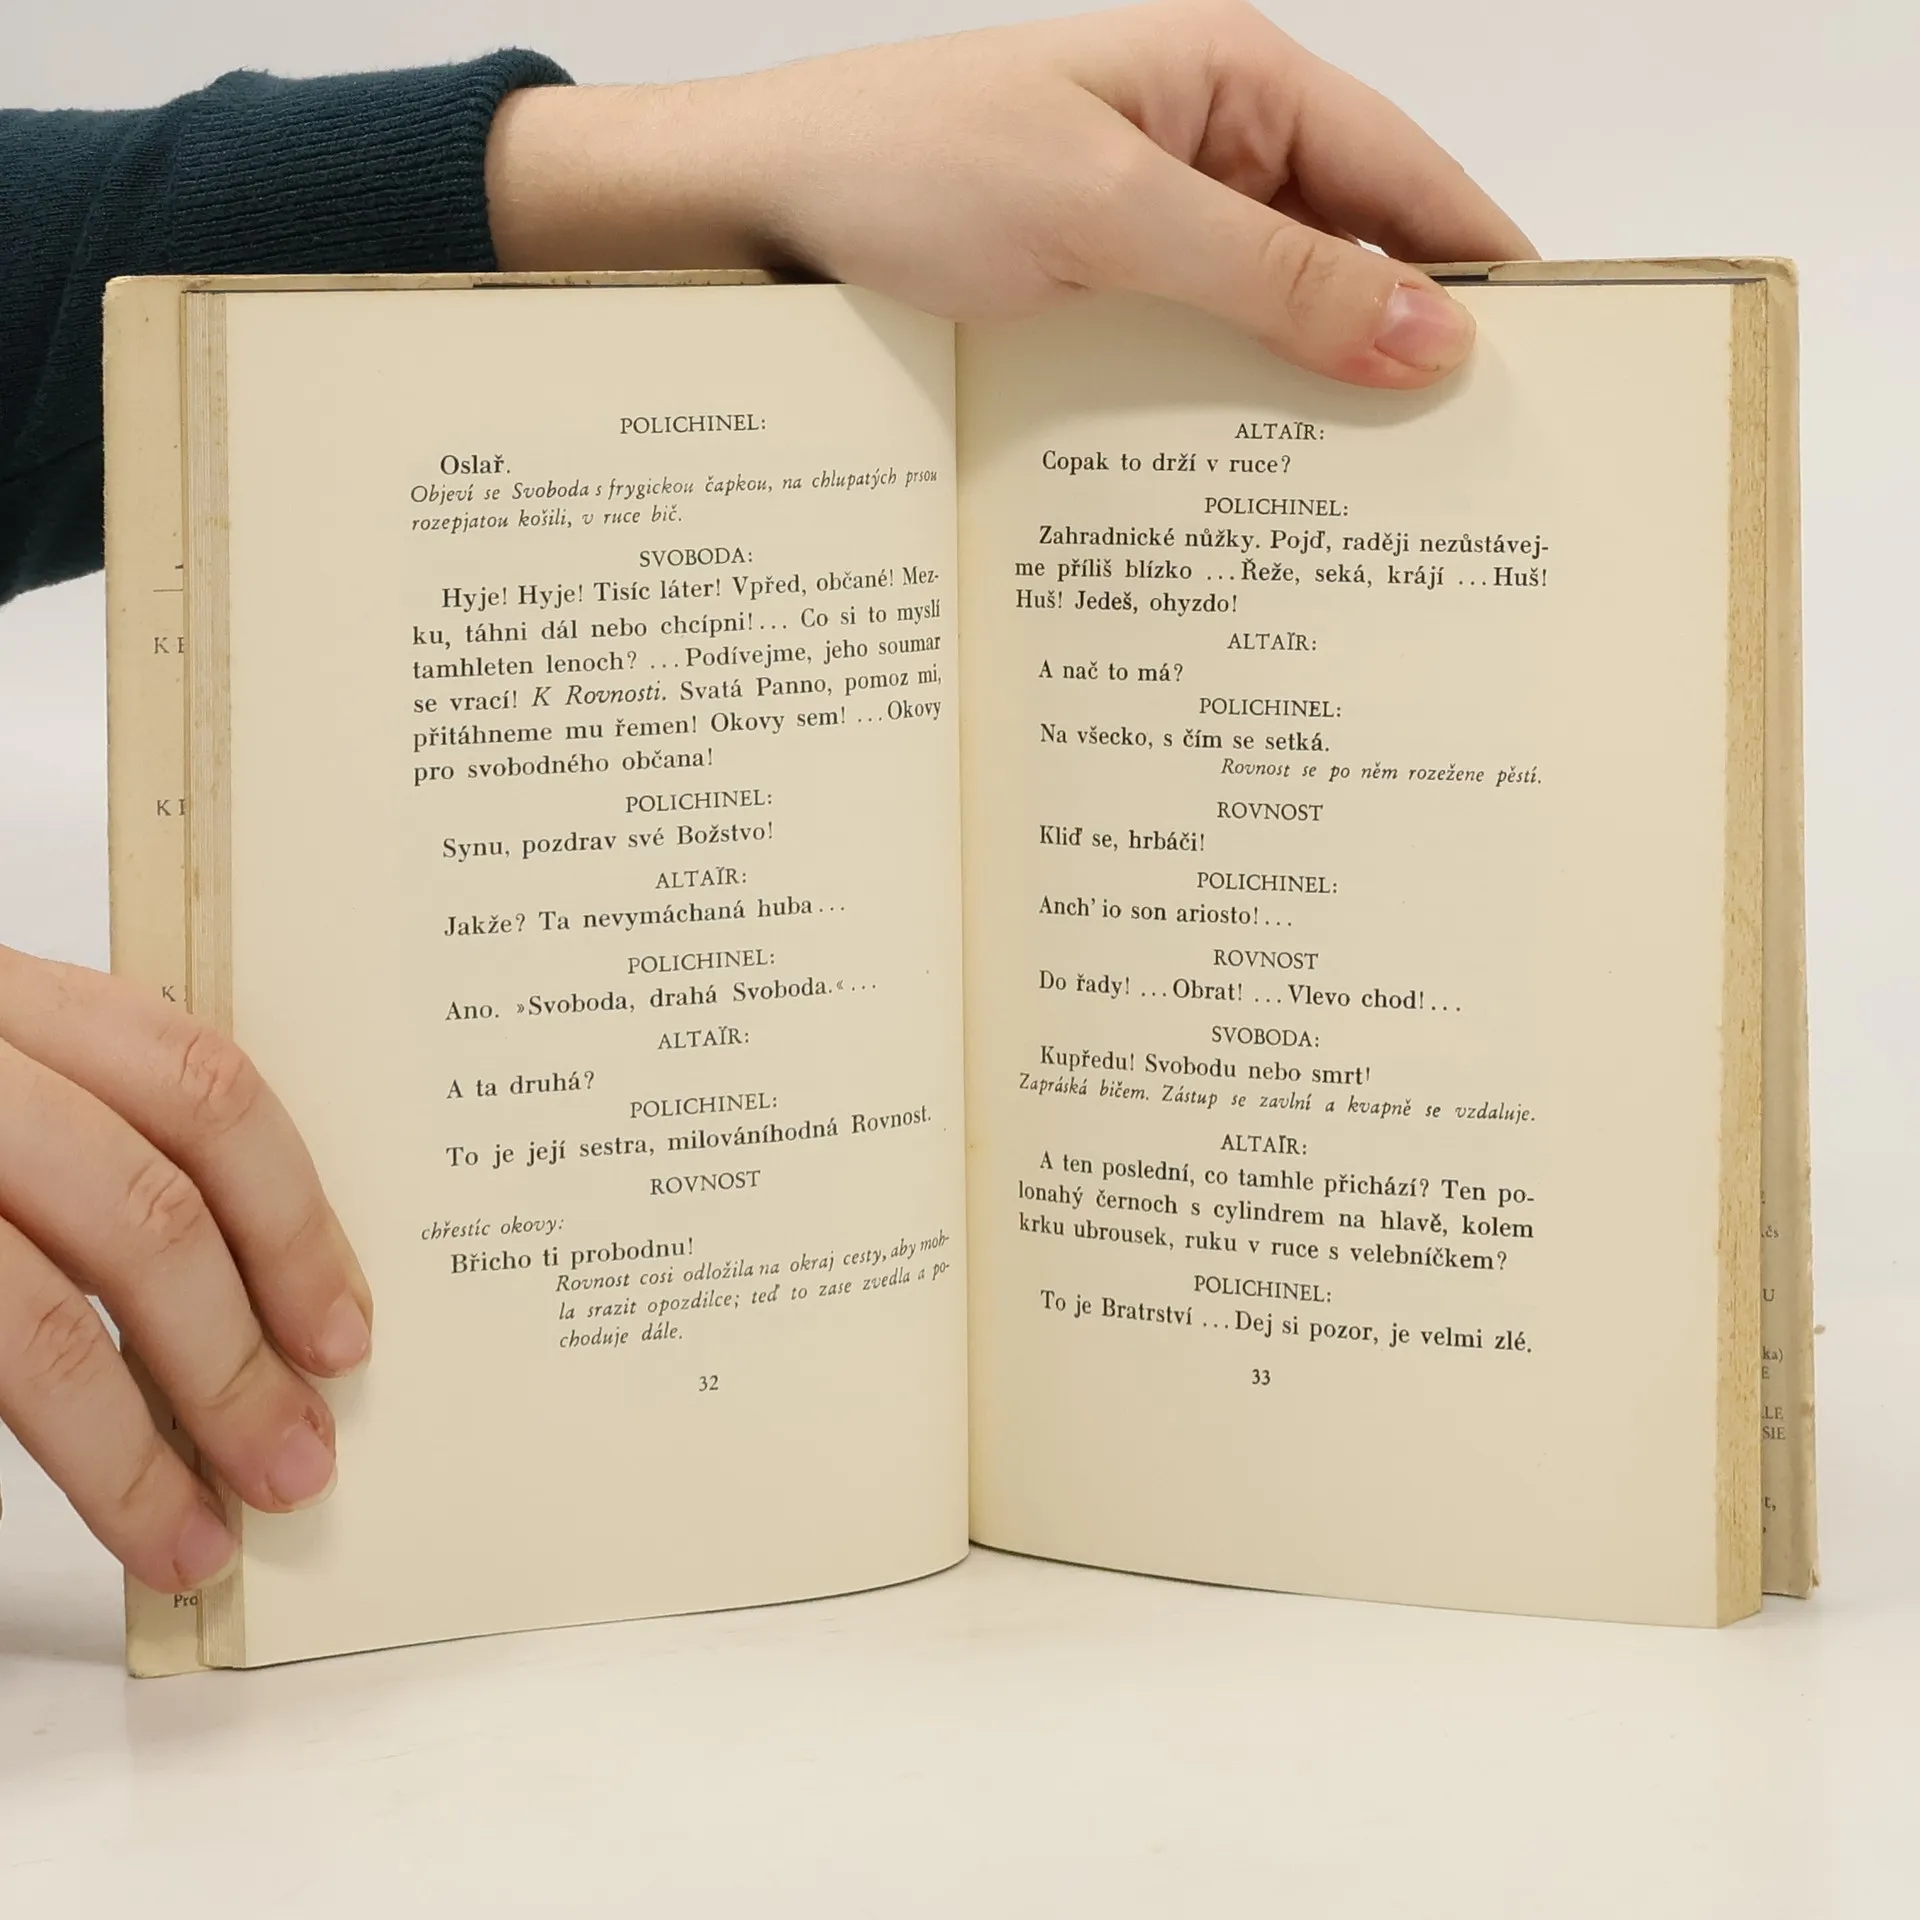 POLICHINEL:
Oslař.
Objeví se Svoboda s frygickou čapkou, na chlupatých prsou
rozepjatou košili, v ruce bič.
SVOBODA:
Hyje! Hyje! Tisíc láter! Vpřed, občané! Mez-
ku, táhni dál nebo chcípni!... Co si to myslí
tamhleten lenoch? ...Podívejme, jeho soumar
se vrací! K Rovnosti. Svatá Panno, pomoz mi,
přitáhneme mu řemen! Okovy sem! ...Okovy
pro svobodného občana!
POLICHINEL:
Synu, pozdrav své Božstvo!
ALTAÏR:
Jakže? Ta nevymáchaná huba...
POLICHINEL:
Ano. »Svoboda, drahá Svoboda.«...
ALTAÏR:
A ta druhá?
POLICHINEL:
To je její sestra, milováníhodná Rovnost.
ROVNOST
chřestíc okovy:
Břicho ti probodnu!
Rovnost cosi odložila na okraj cesty, aby moh-
la srazit opozdilce; teď to zase zvedla a po-
choduje dále.
32
ALTAÏR:
Copak to drží v ruce?
POLICHINEL:
Zahradnické nůžky. Pojď, raději nezůstávej-
me příliš blízko ...Řeže, seká, krájí ...Huš!
Huš! Jedeš, ohyzdo!
ALTAÏR:
A nač to má?
POLICHINEL:
Na všecko, s čím se setká.
Rovnost se po něm rozežene pěstí.
ROVNOST
Kliď se, hrbáči!
POLICHINEL:
Anch' io son ariosto!...
ROVNOST
Do řady! ...Obrat! ...Vlevo chod!...
SVOBODA:
Kupředu! Svobodu nebo smrt!
Zapráská bičem. Zástup se zavlní a kvapně se vzdaluje.
ALTAÏR:
A ten poslední, co tamhle přichází? Ten po-
lonahý černoch s cylindrem na hlavě, kolem
krku ubrousek, ruku v ruce s velebníčkem?
POLICHINEL:
To je Bratrství ...Dej si pozor, je velmi zlé.
33